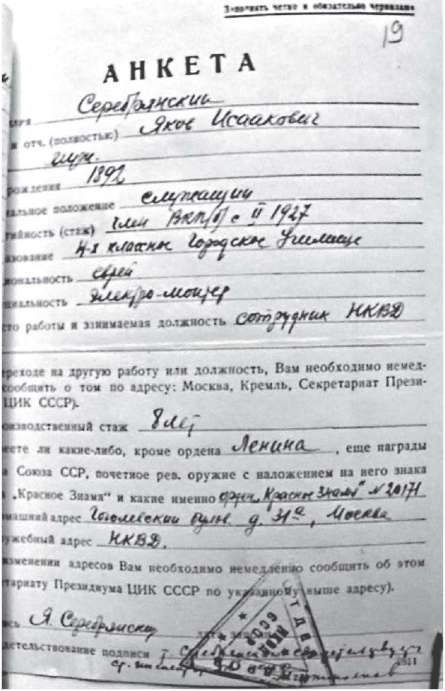 Заполнять четко и обязательно чернилами
19
АНКЕТА
Серебрянский
отч. (полностью) Яков Исаакович
муж.
рождения 1892
альное положение служащий
тийность (стаж) член ВКП(б) с II 1927
зование 4-х классное Городское Училище
иональность еврей
циальность электро-монтер
сто работы и занимаемая должность сотрудник НКВД
ереходе на другую работу или должность, Вам необходимо немед-
сообщить о том по адресу: Москва, Кремль, Секретариат Прези-
ЦИК СССР).
оизводственный стаж 8 лет
еете ли какие-либо, кроме ордена Ленина, еще награды
а Союза ССР, почетное рев. оружие с наложением на него знака
а „Красное Знамя" и какие именно орден „Красное Знамя" № 20171
машний адрес Гоголевский бульв. д. 31а, Москва
ужебный адрес НКВД.
изменения адресов Вам необходимо немедленно сообщить об этом
етариату Президиума ЦИК СССР по указанному выше адресу).
ись Я. Серебрянский
детельствование подписи т. Серебрянского